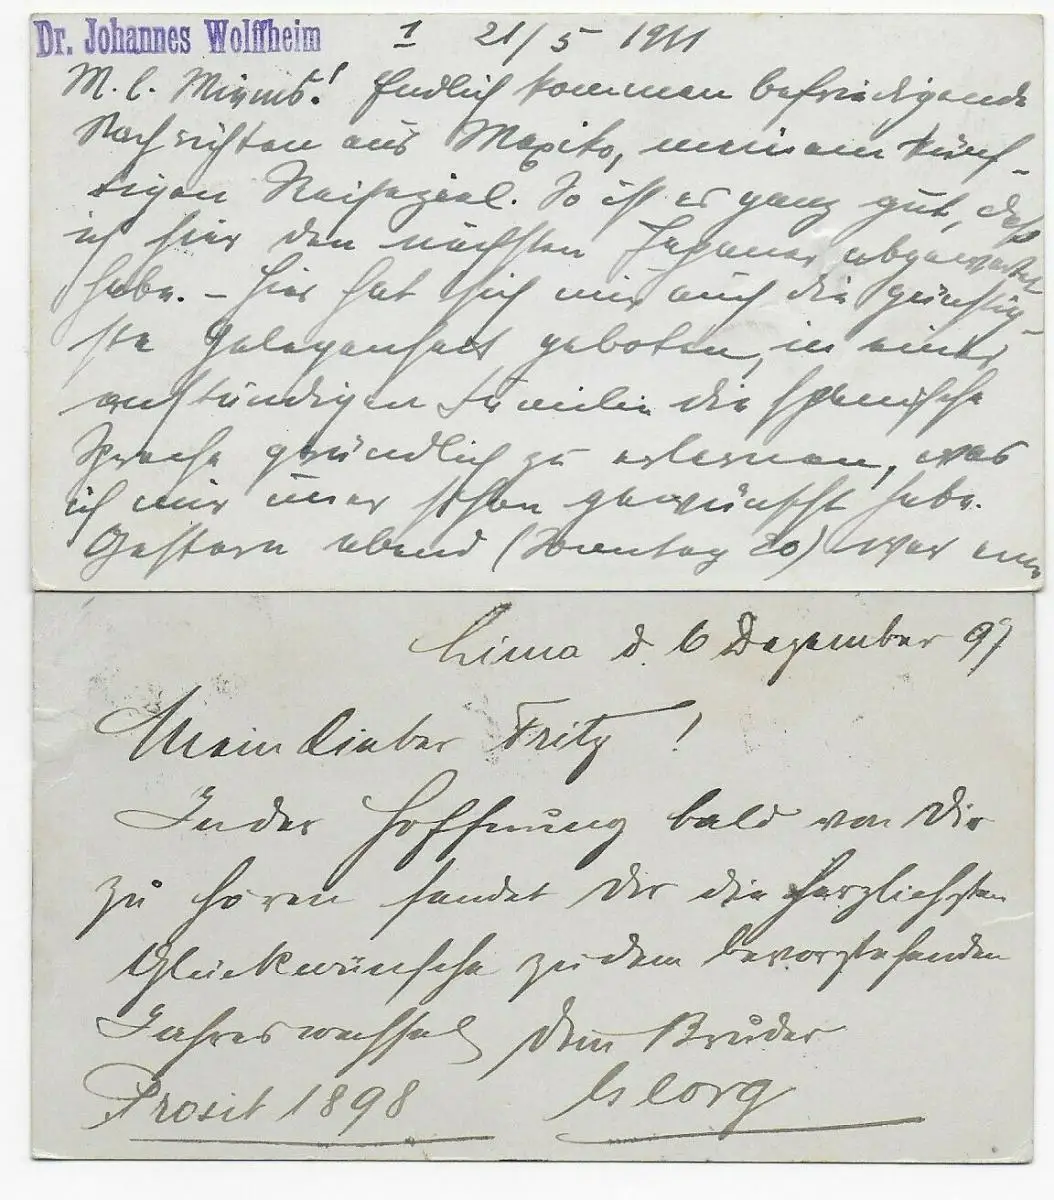 Dr. Johannes Wolffheim 1 21/5 1911
M. l. Endlich kommen befriedigende
Nachrichten aus Mexiko, meinem künf-
tigen Reiseziel. So ist es ganz gut, daß
ich hier den nächsten Japaner abgewartet
habe. – Hier hat sich mir auch die günstig-
ste Gelegenheit geboten, in einer
anständigen Familie die spanische
Sprache gründlich zu erlernen, was
ich mir immer schon gewünscht habe.
Gestern abend (Sonntag 20) war
Lima d. 6 Dezember 97
Mein lieber Fritz!
In der Hoffnung bald von Dir
zu hören sendet Dir die herzlichsten
Glückwünsche zu dem bevorstehenden
Jahreswechsel Dein Bruder
Prosit 1898 Georg